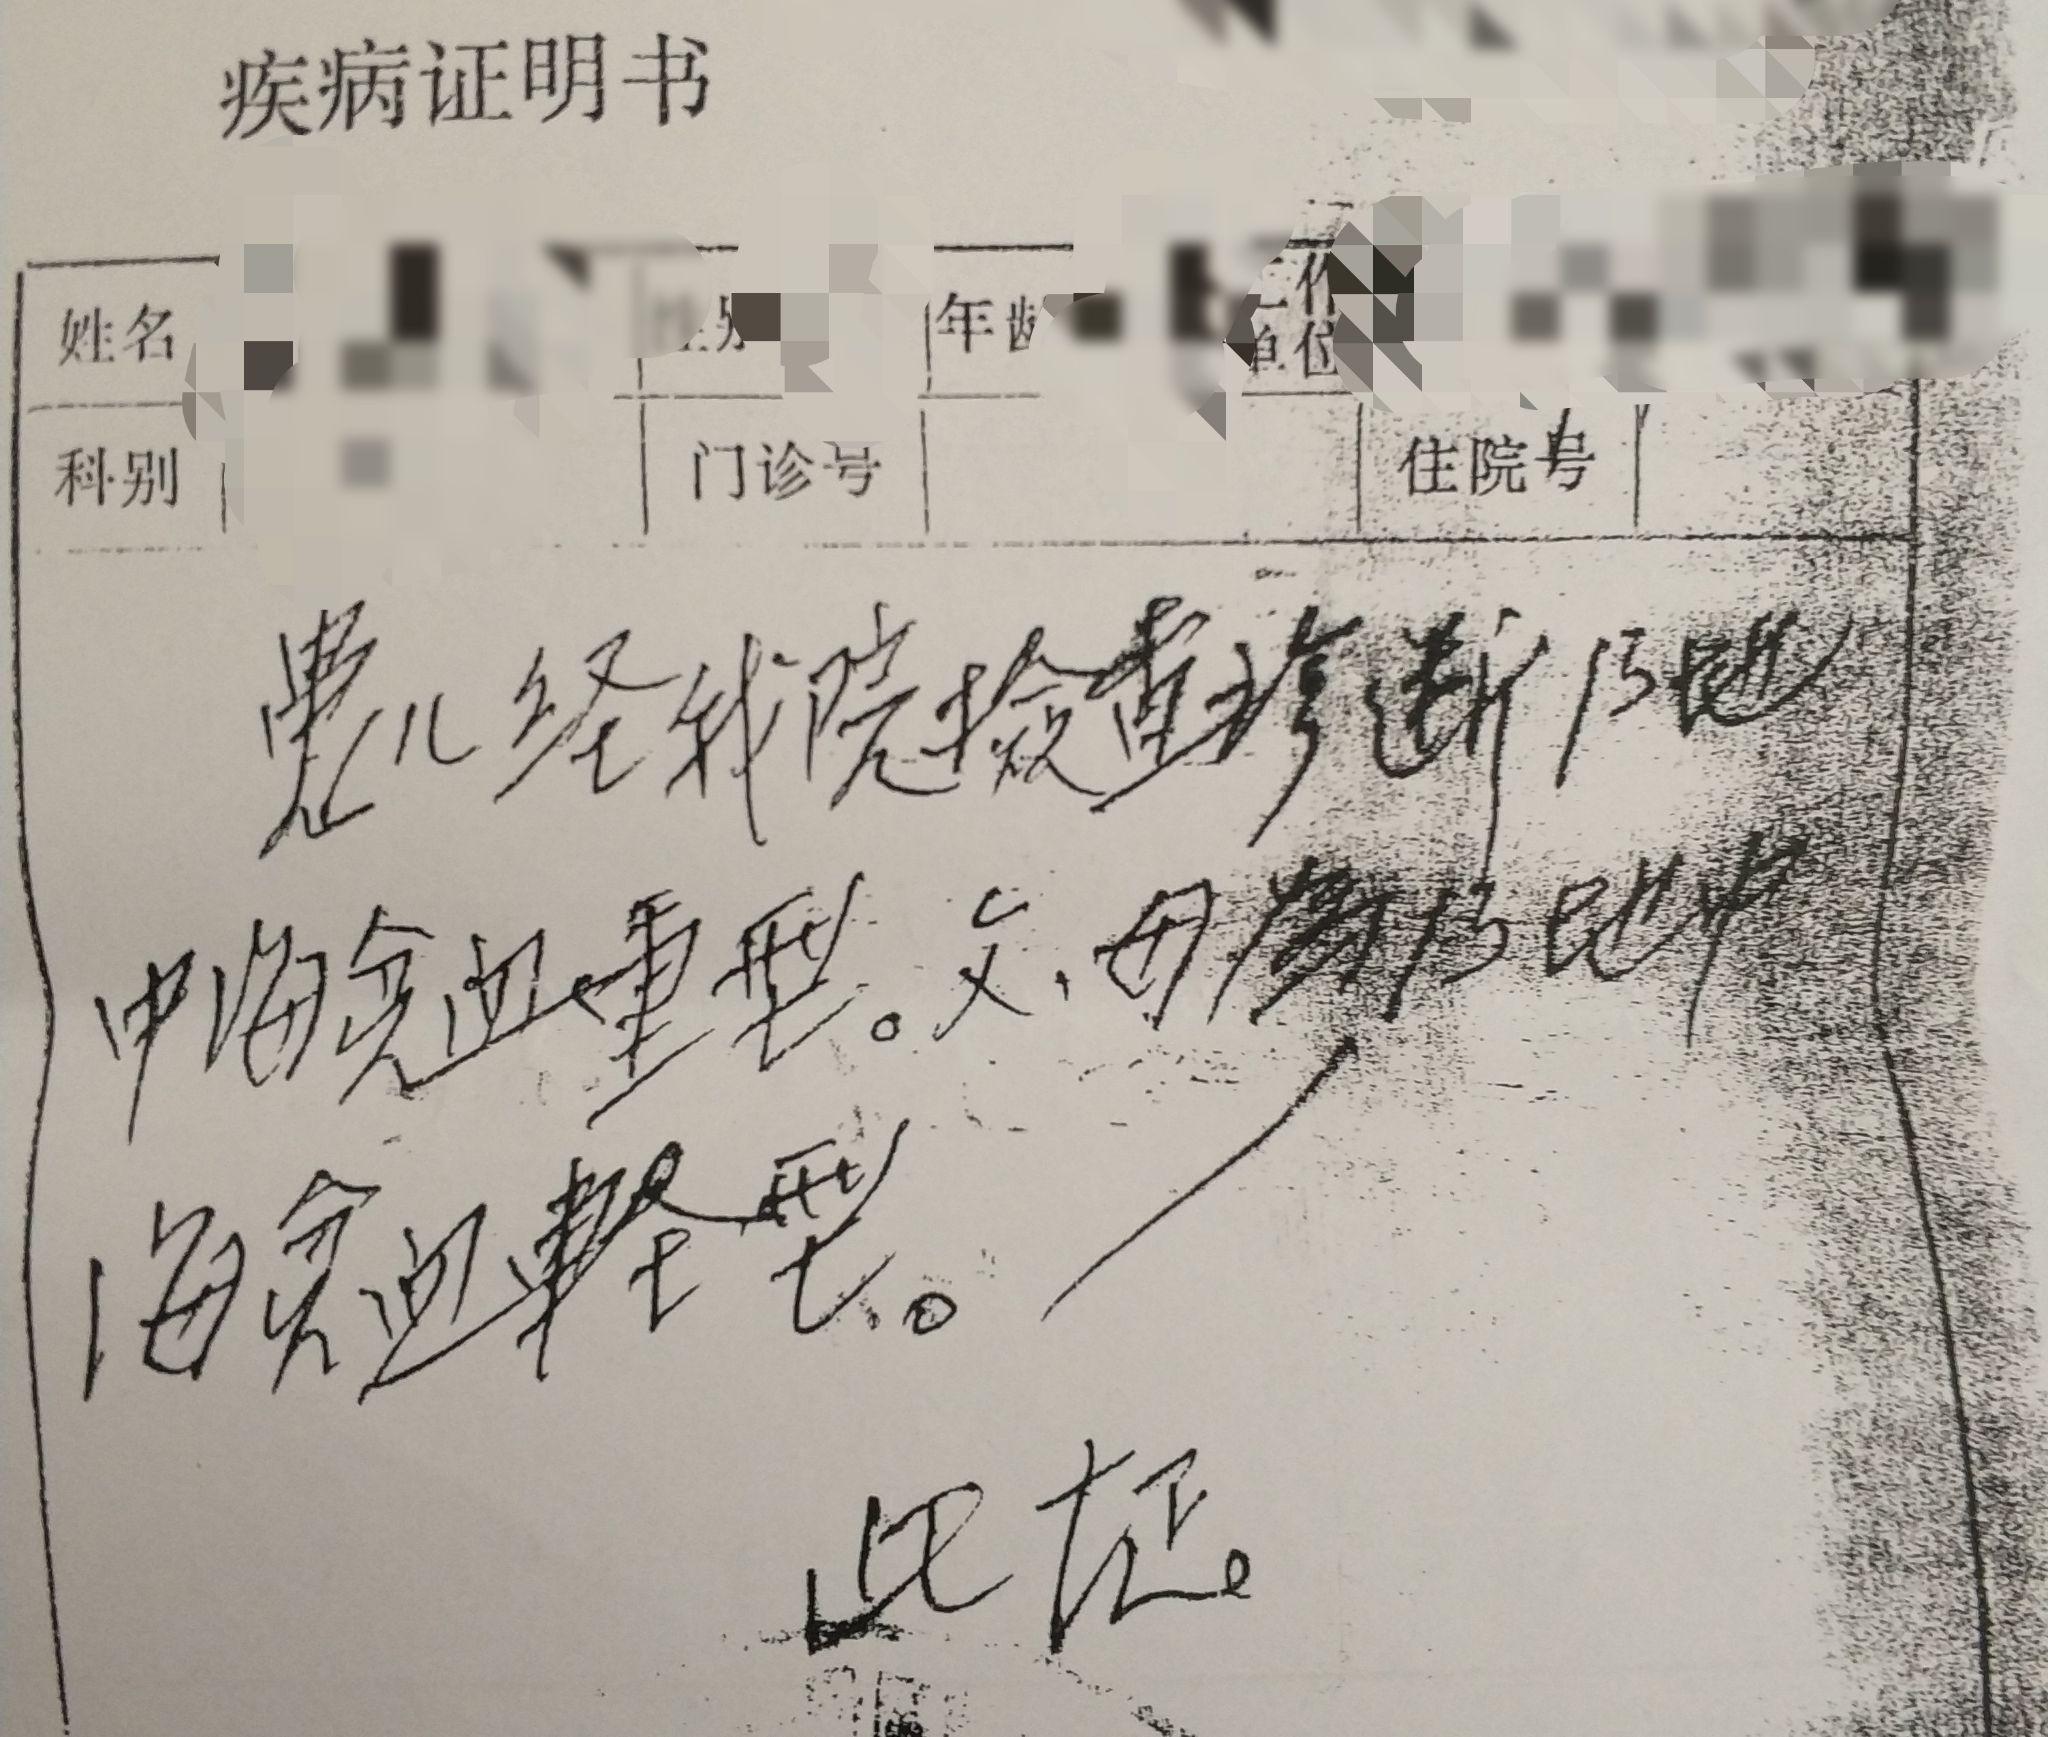 疾病证明书
姓名 性别 年龄 工作单位
科别 门诊号 住院号
患儿经我院检查诊断β地
中海贫血重型。父、母为β地中
海贫血轻型。
此证